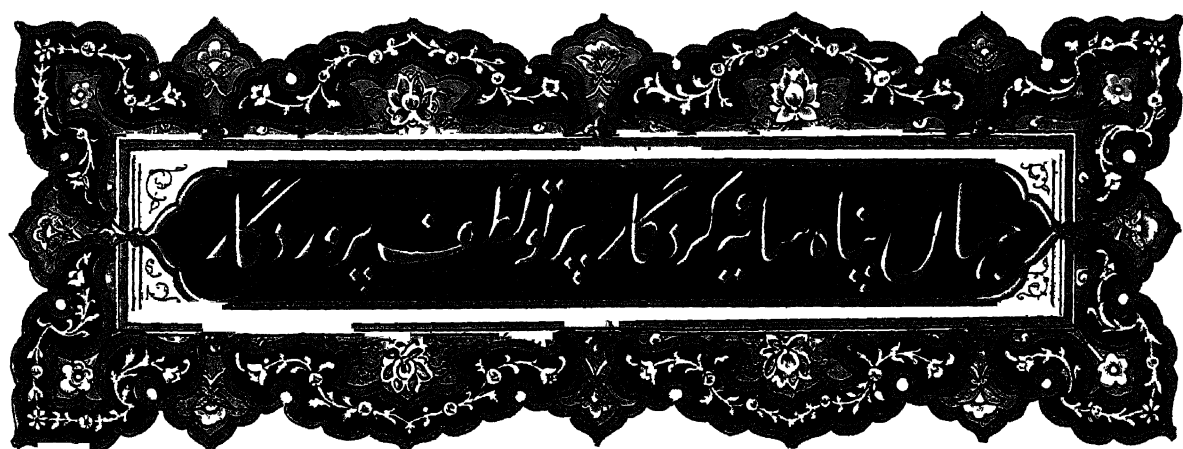 جهان پناه سایه کردگار پرتو لطف پروردگار